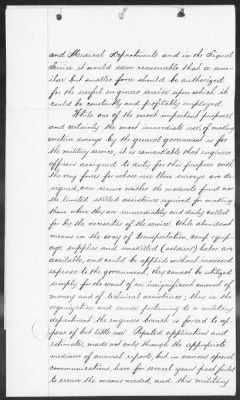 and Medical Departments and in the Signal
Service it would seem reasonable that a sim-
ilar but smaller force should be authorized
for the useful engineer service upon which it
could be constantly and profitably employed.
While one of the most important purposes,
and certainly the most immediate uses, of making
certain surveys by the general government is for
the military service, it is remarkable that engineer
officers assigned to duty for this purpose with
the very forces for whose uses these surveys are de-
signed, can secure neither the moderate fund nor
the limited skilled assistance required for making
them when they are immediately and duly called
for by the necessities of the service. While abundant
means in the way of transportation, camp equip-
age, supplies and unskilled (soldiers') labor are
available, and could be applied without increased
expense to the government, they cannot be utilized
simply for the want of an insignificant amount of
money and of technical assistance; thus in the
organization and uses pertaining to a military
department the engineer branch is forced to ap-
pear of but little use. Repeated applications and
estimates, made not only through the appropriate
medium of annual reports, but in various special
communications, have for several years past failed
to secure the means needed, and this military